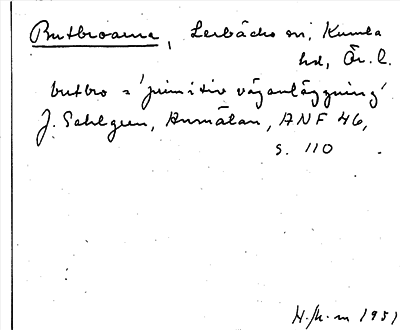 Butbroarna, Lerbäcks sn, Kumla
hd, Ör. l.
butbro = 'primitiv väganläggning'
J. Sahlgren, Anmälan, ANF 46,
s. 110
H. /k. m 1951